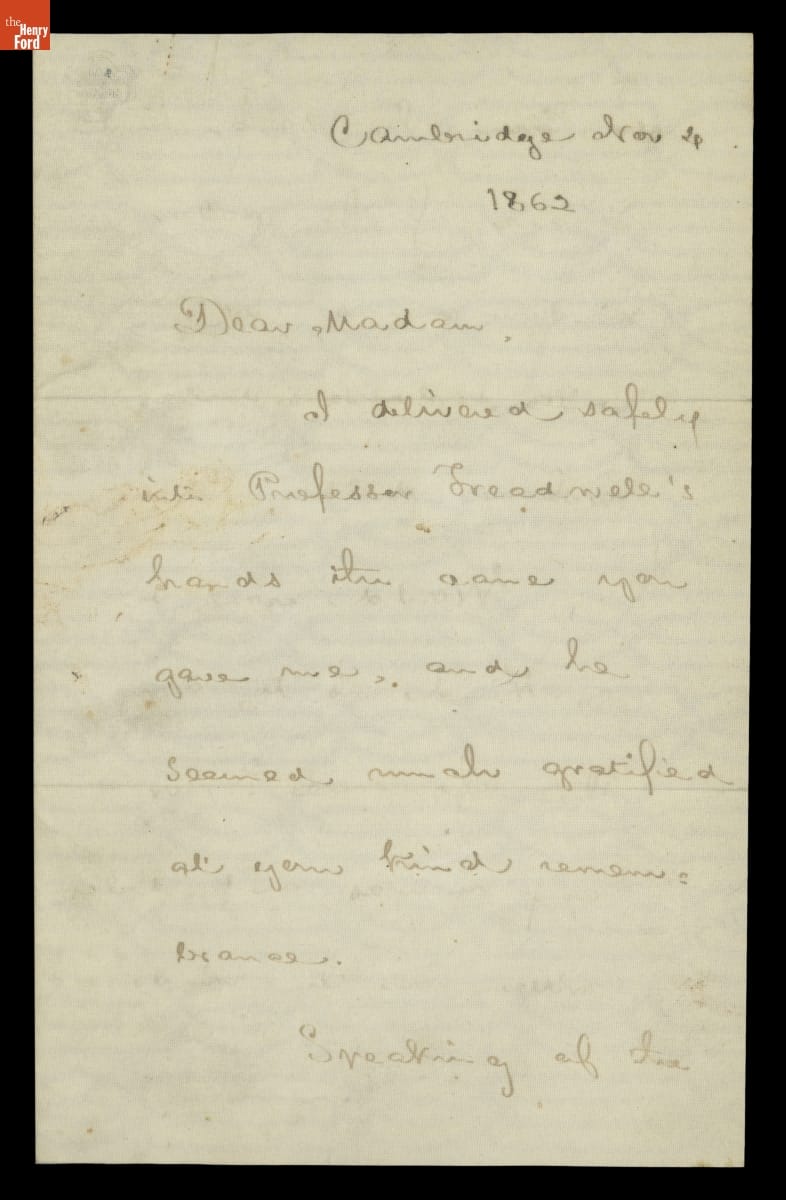 the
Henry
Ford
Cambridge Nov 24
1862
Dear Madam,
I delivered safely
into Professor Treadwell's
hands the cane you
gave me, and he
seemed much gratified
at your kind remem=
brance.
Speaking of the